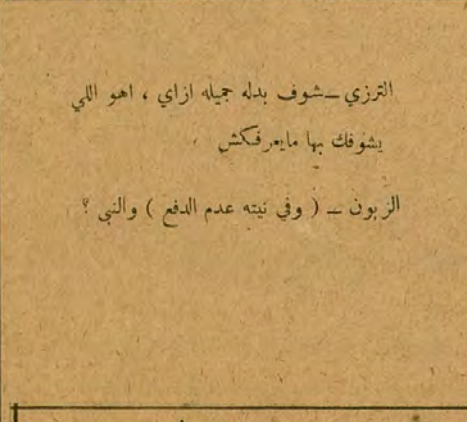 الترزي — شوف بدله جميله ازاي ، اهو اللي
يشوفك بها مايعرفكش
الزبون — ( وفي نيته عدم الدفع ) والنبي ؟